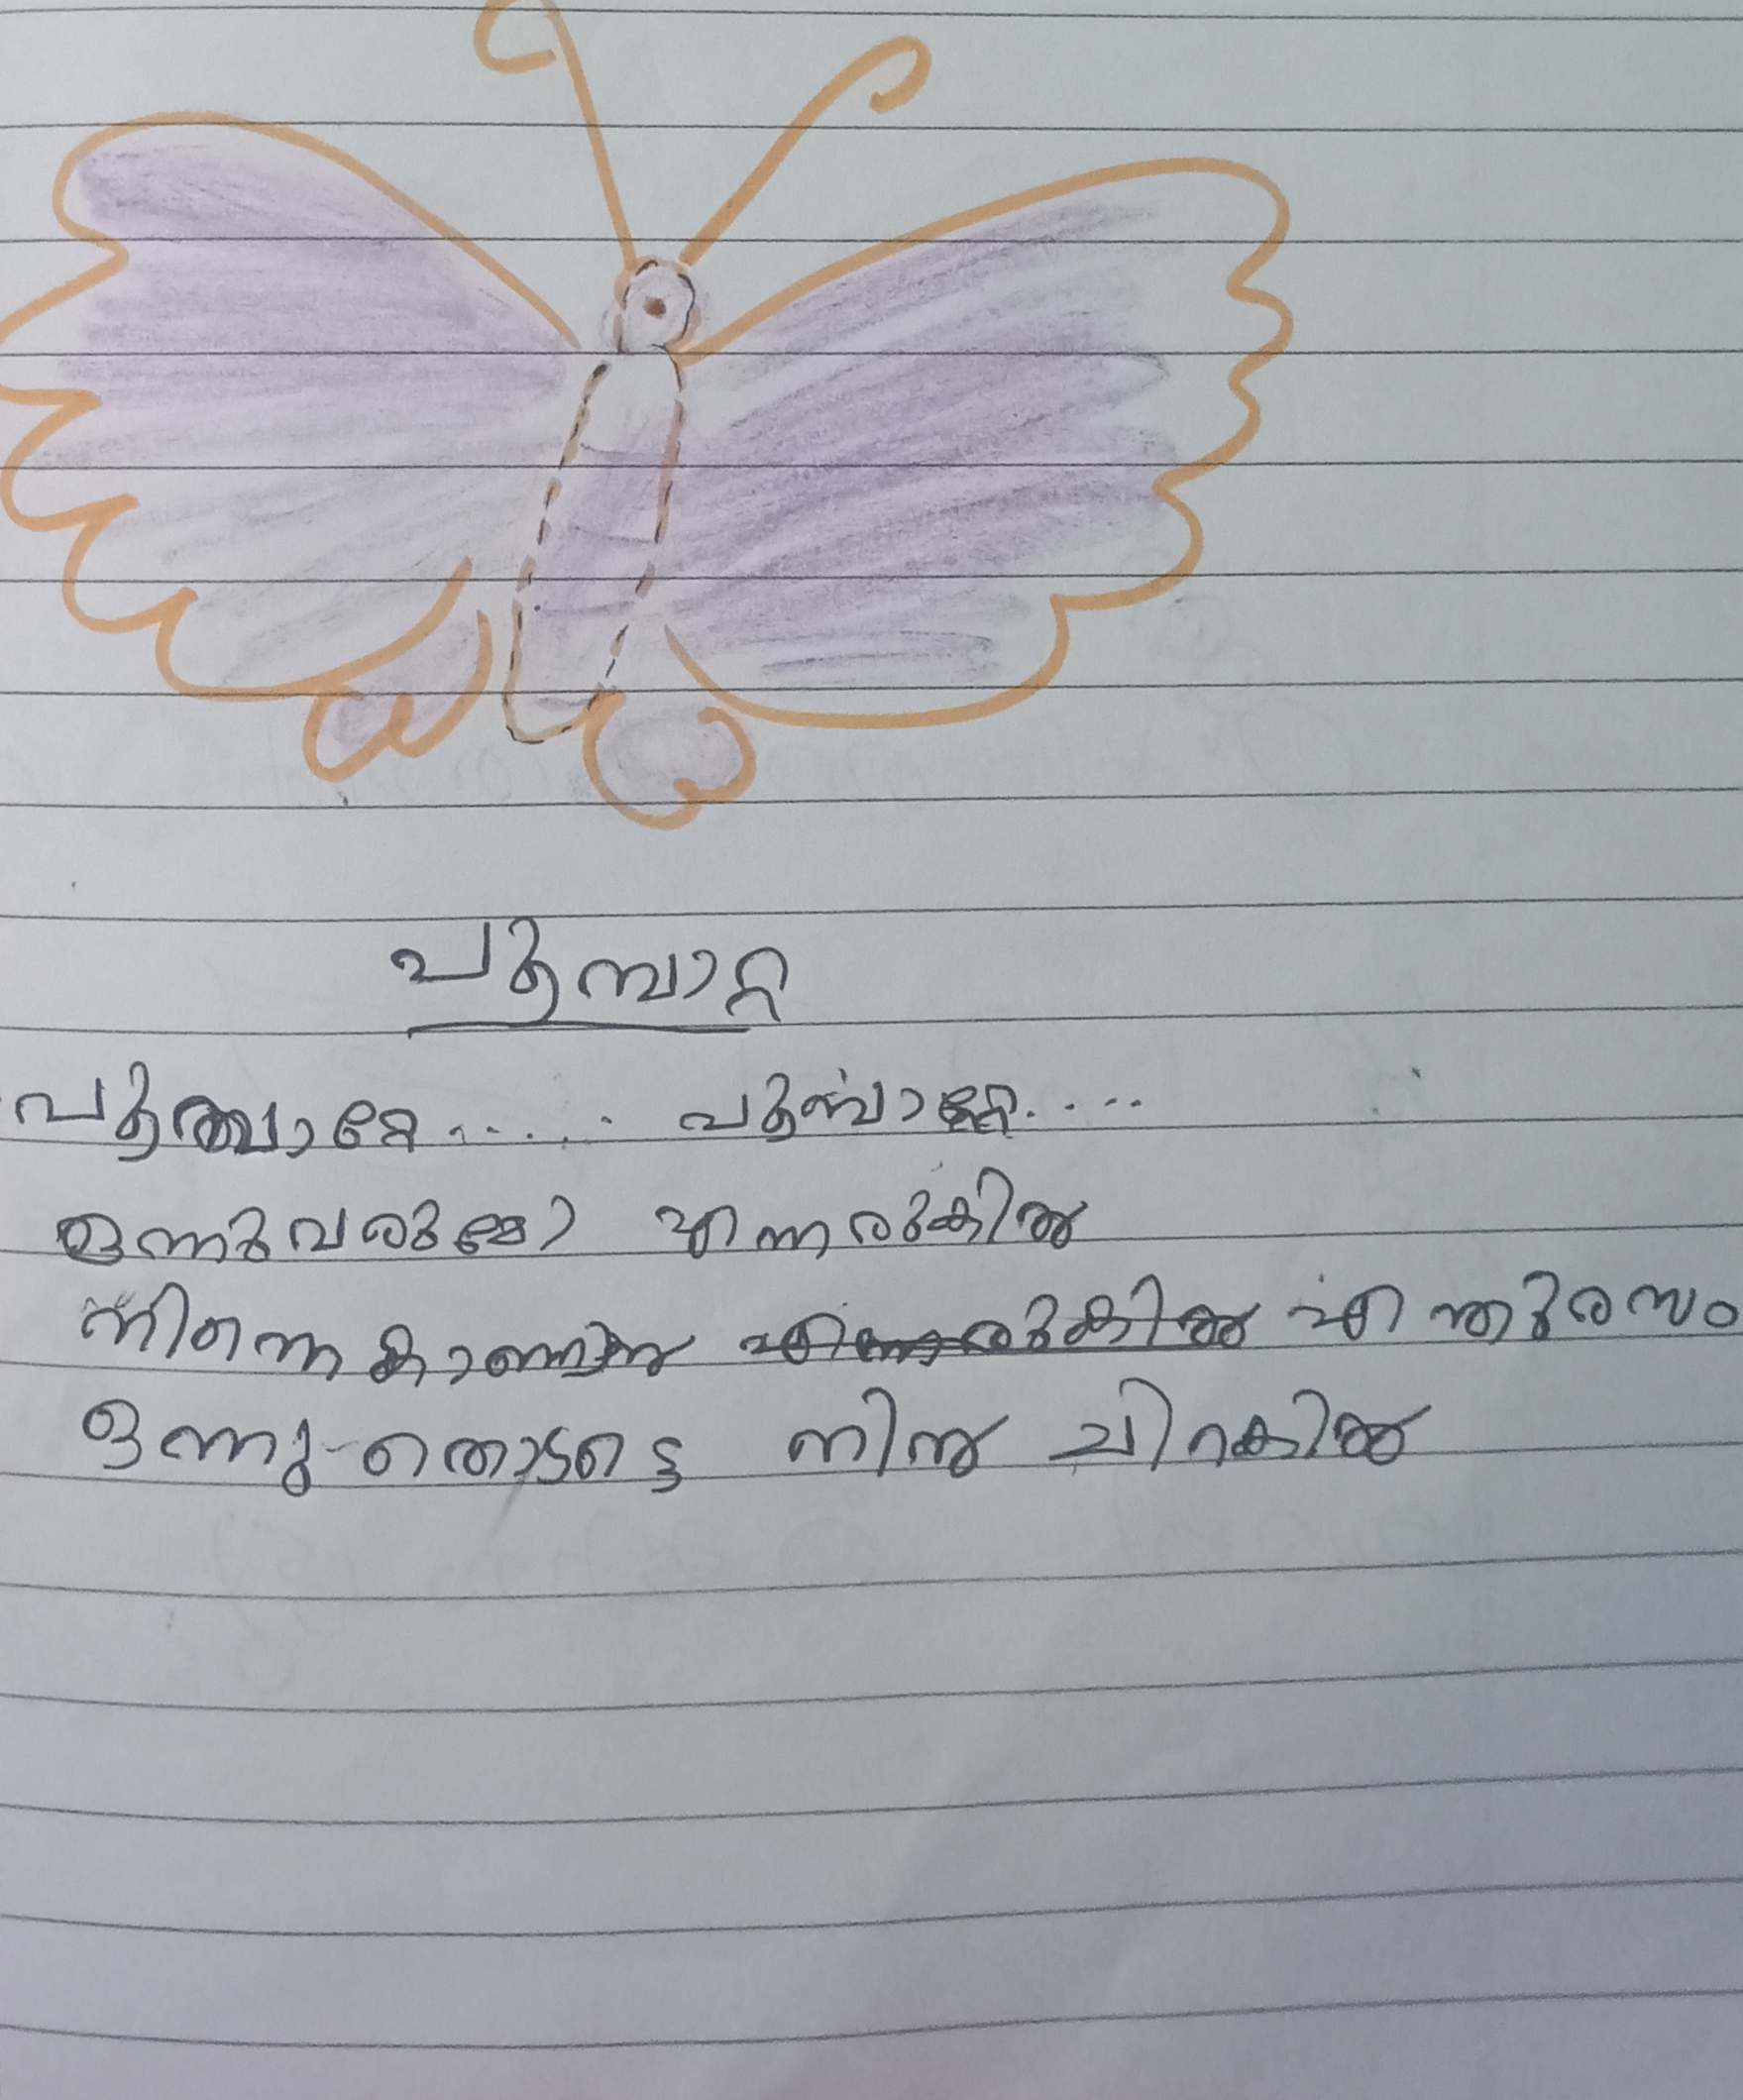 പൂമ്പാറ്റ
പൂമ്പാറ്റേ...... പൂമ്പാറ്റേ.....
ഒന്നുവരുമോ എന്നരുകിൽ
നിന്നെകാണാൻ എന്തുരസം
ഒന്നു തൊടട്ടെ നിൻ ചിറകിൽ